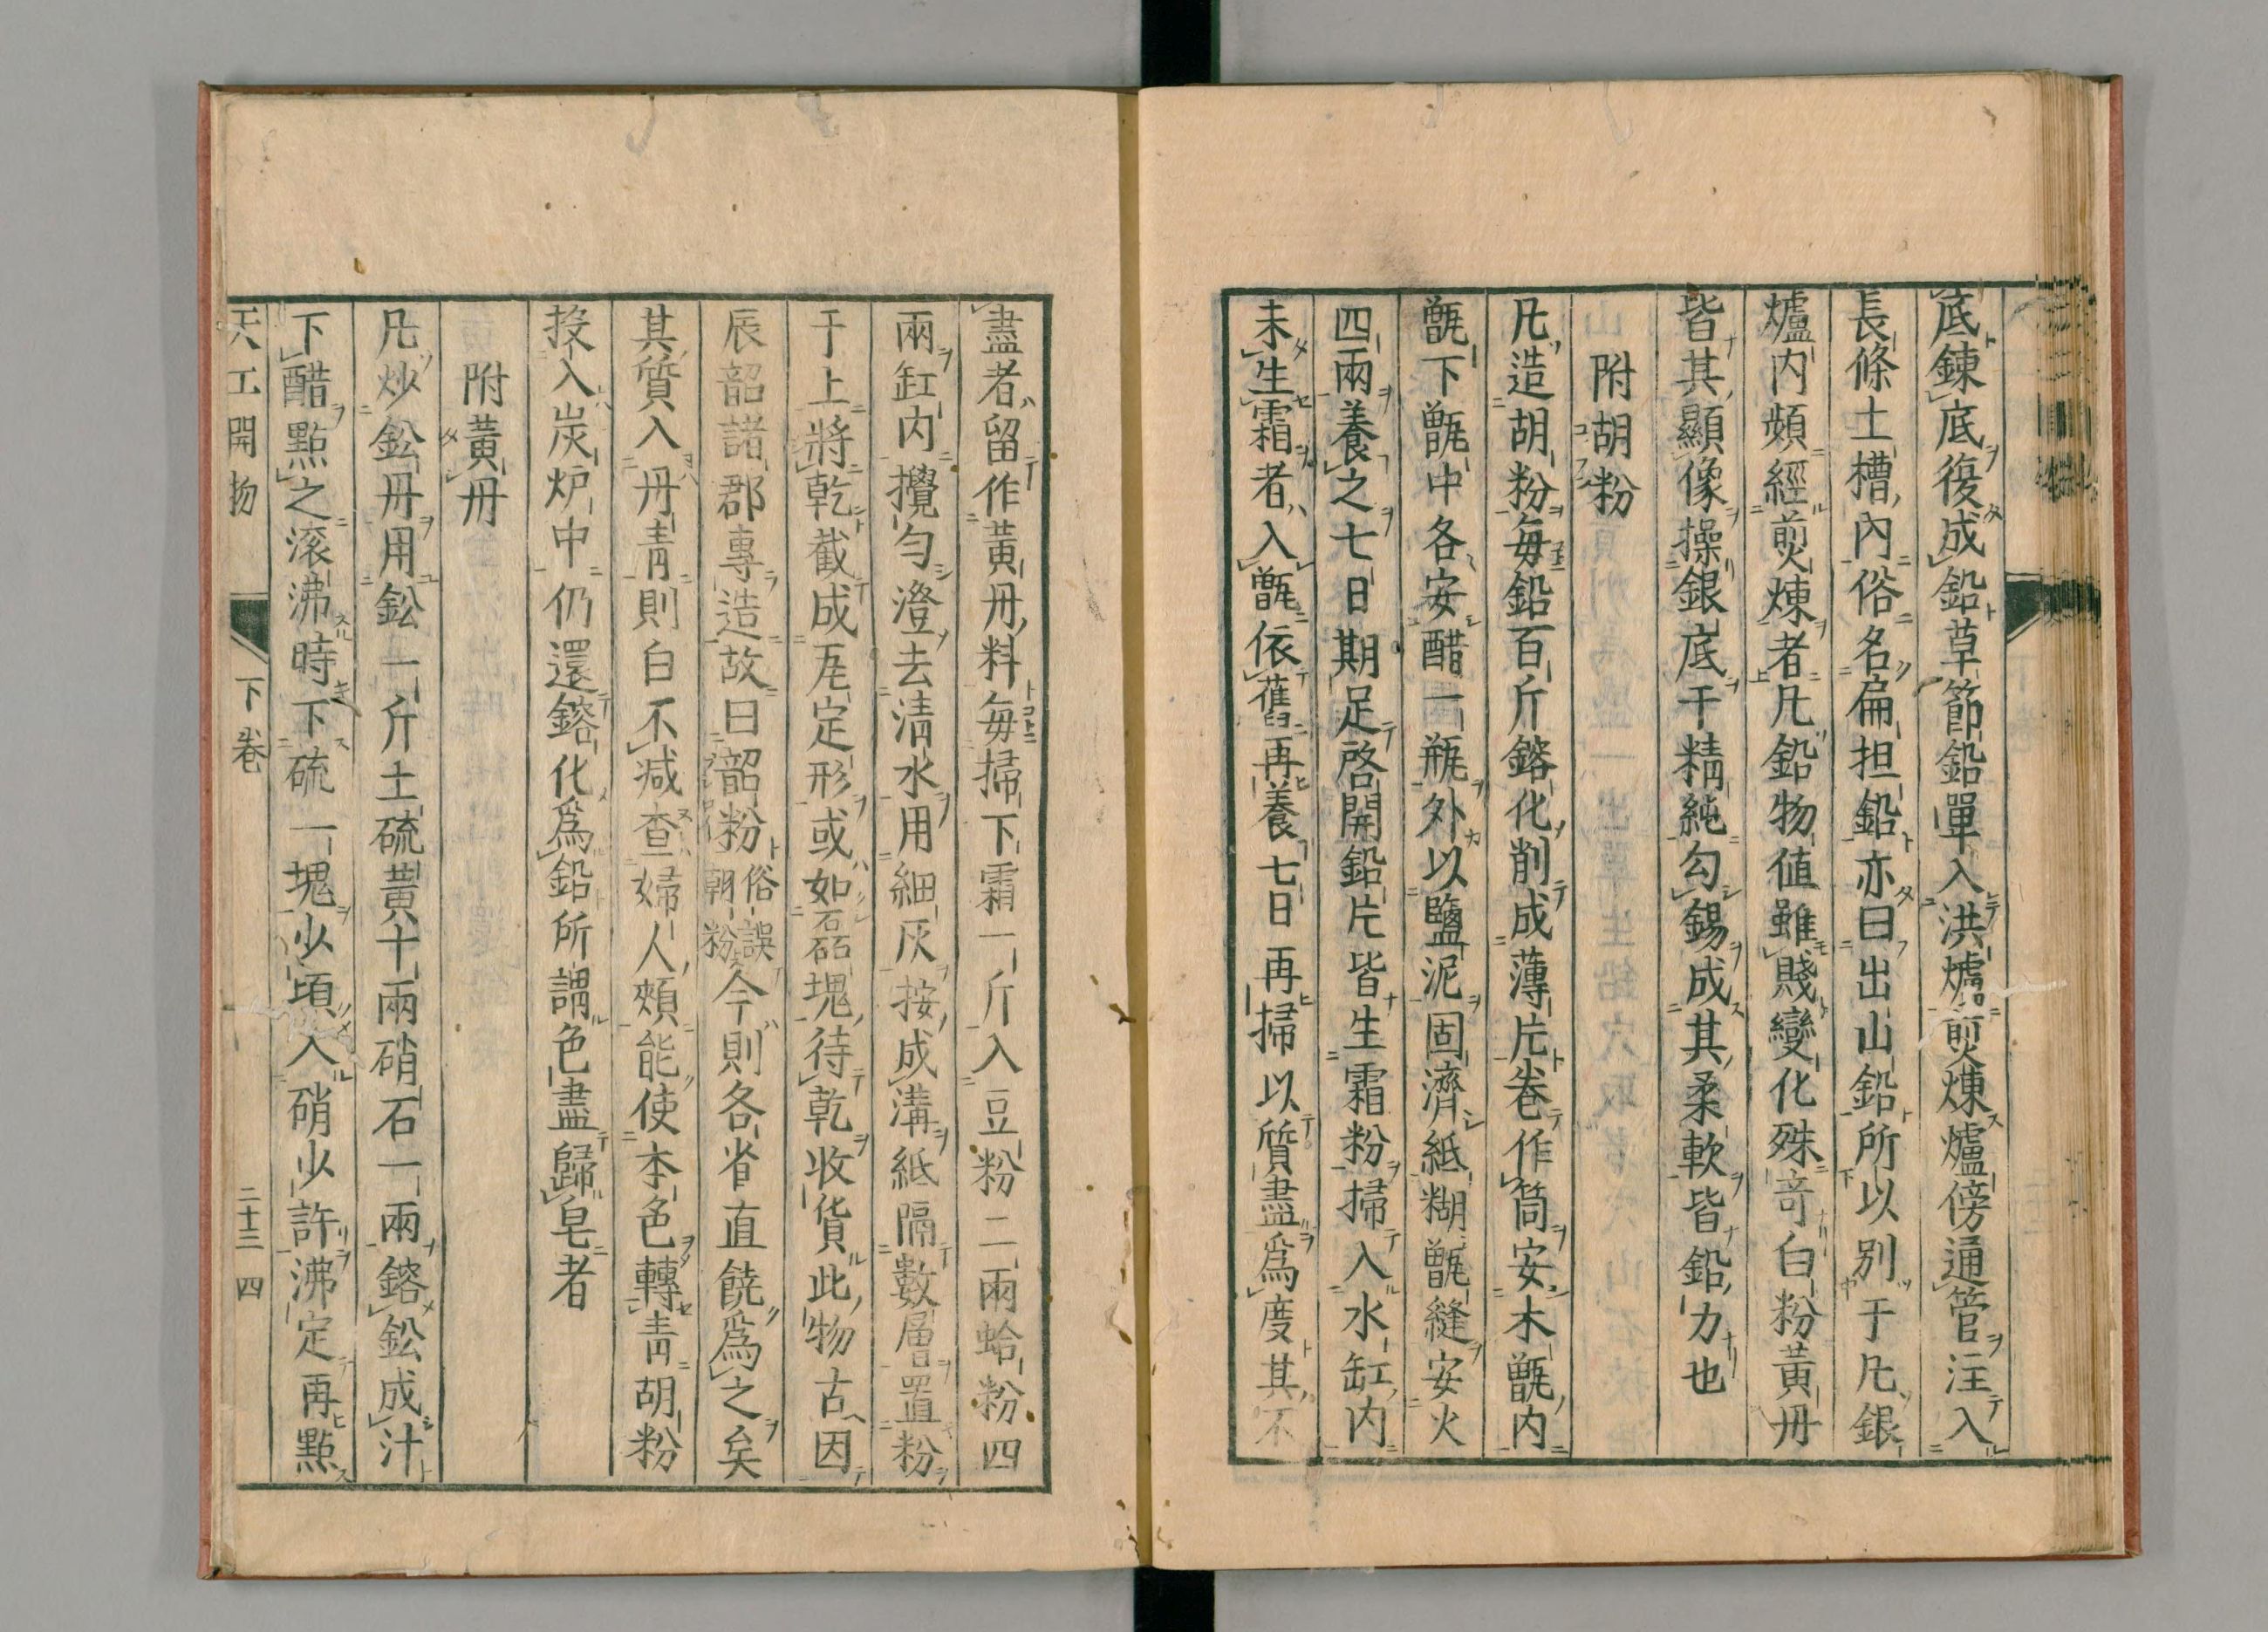 底錬底復成鉛草節鉛單入洪爐煎煉爐傍通管注入
長條土槽內俗名扁担鉛亦曰出山鉛所以別于凡銀
爐内頻經煎煉者凡鉛物値雖賤變化殊竒白粉黃丹
皆其顯像操銀底于精純勾錫成其柔軟皆鉛力也
附胡粉
凡造胡粉每鉛百斤鎔化削成薄片卷作筒安木甑内
甑下甑中各安醋一瓶外以鹽泥固濟紙糊甑縫安火
四兩養之七日期足啓開鉛片皆生霜粉掃入水缸内
未生霜者入甑依舊再養七日再掃以質盡爲度其不
盡者留作黃丹料每掃下霜一斤入豆粉二兩蛤粉四
兩缸内攪勻澄去清水用細灰按成溝紙隔數層置粉
于上將乾截成瓦定形或如磊塊待乾收貨此物古因
辰韶諸郡專造故曰韶粉俗誤朝粉今則各省直饒爲之矣
其質入丹青則白不减查婦人頰能使本色轉青胡粉
投入炭炉中仍還鎔化爲鉛所謂色盡歸皂者
附黃丹
凡炒鈆丹用鈆一斤土硫黃十兩硝石一兩鎔鈆成汁
下醋點之滚沸時下硫一塊少頃入硝少許沸定再點
天工開物 下卷 二十三 四